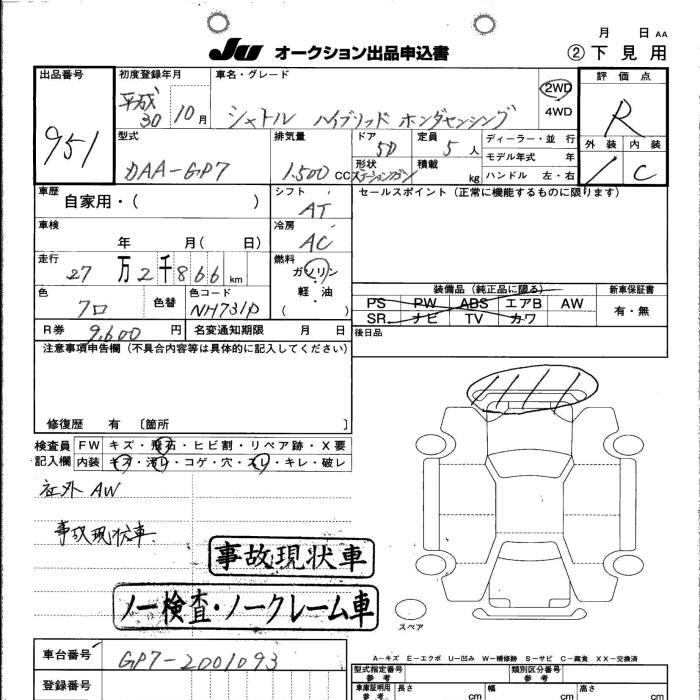 月 日 AA
JU オークション出品申込書 ②下見用
出品番号 初度登録年月 車名・グレード 評価点
951 平成30 10月 シャトル ハイブリッド ホンダセンシング 2WD 4WD R
型式 排気量 ドア 定員 ディーラー・並行 外装 内装
DAA-GP7 1.500cc 5D 5人 モデル年式 年 / C
形状 積載 ハンドル 左・右
ステーションワゴン kg
車歴 シフト セールスポイント(正常に機能するものに限ります)
自家用・( ) AT
車検 冷房
年 月( 日) AC
走行 燃料
27万2千866km ガソリン 軽油 ( )
装備品(純正品に限る) 新車保証書
PS PW ABS エアB AW 有・無
SR ナビ TV カワ
色 色替 色コード
クロ NH731P
R券 9.600円 名変通知期限 月 日 後日品
注意事項申告欄(不具合内容等は具体的に記入してください)
修復歴 有 〔箇所 〕
検査員 FW キズ・飛石・ヒビ割・リペア跡・X要
記入欄 内装 キズ・汚レ・コゲ・穴・スレ・キレ・破レ
社外 AW
事故現状車
事故現状車
ノー検査・ノークレーム車
スペア
A−キズ E−エクボ U−凹み W−補修跡 S−サビ C−腐食 XX−交換済
車台番号 GP7-2001093
型式指定番号 参考 類別区分番号 参考
登録番号
車庫証明用 参考 長さ cm 幅 cm 高さ cm